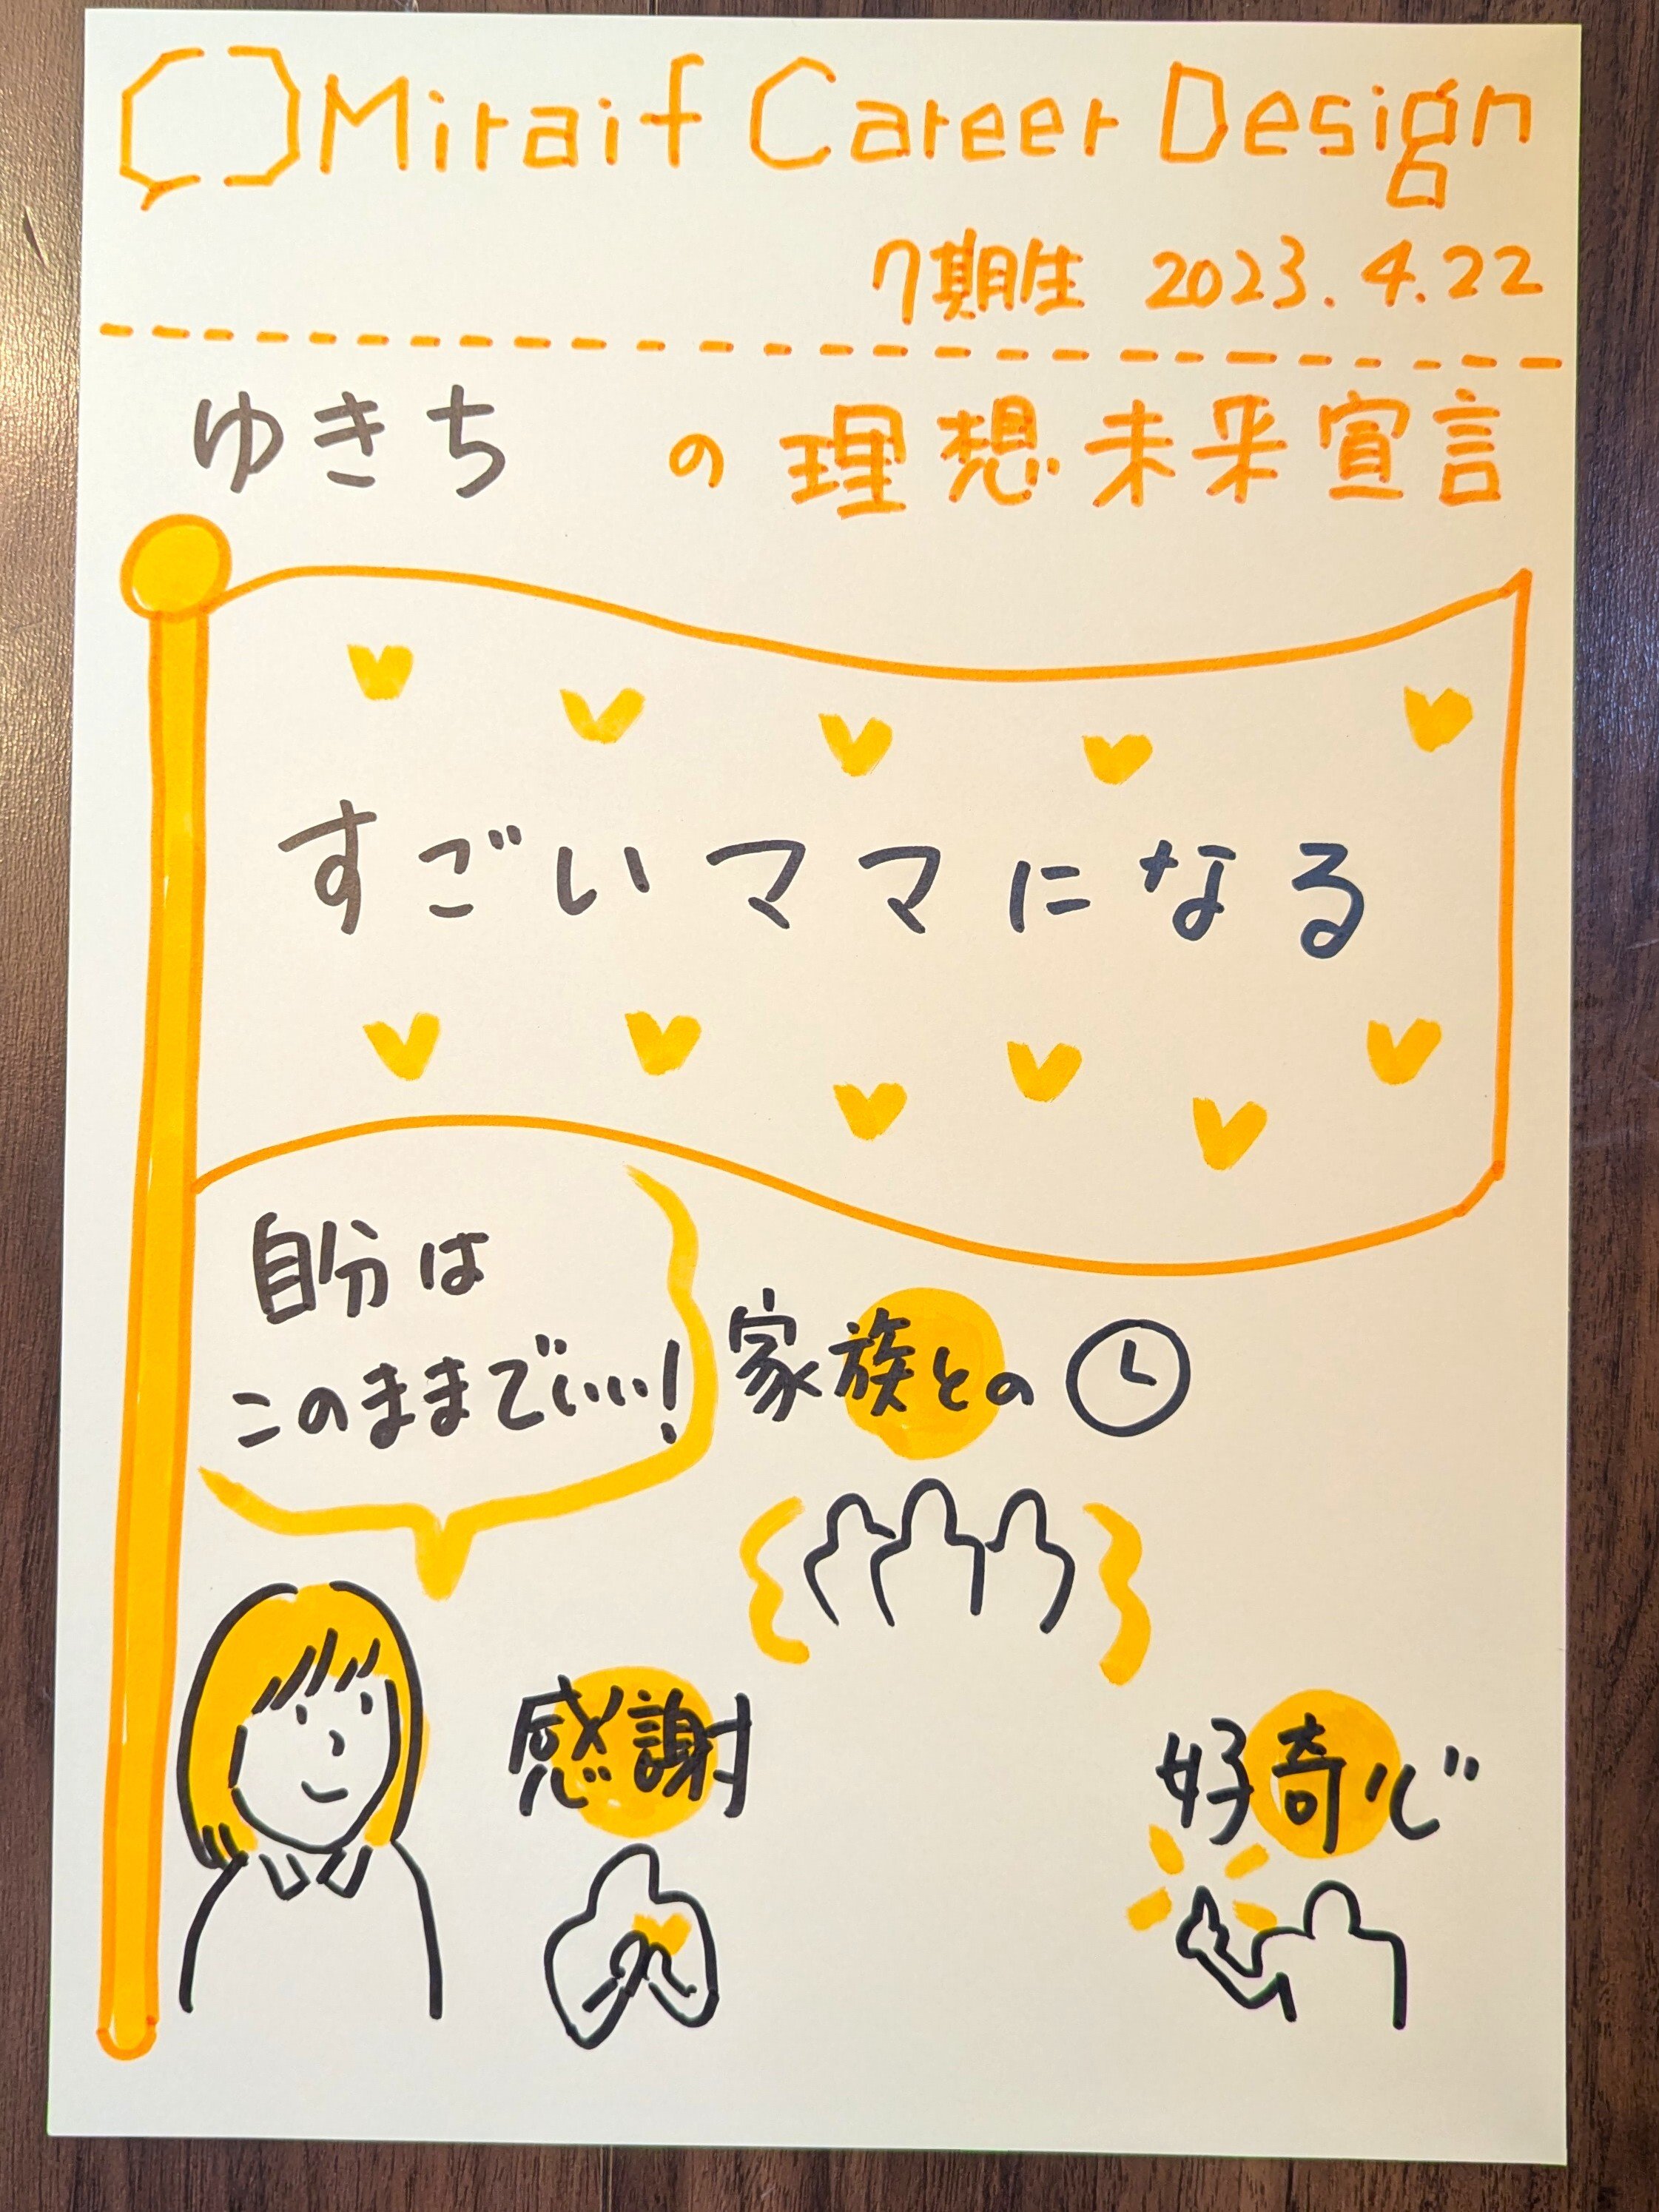 Miraif Career Design
7期生 2023.4.22
ゆきち の理想未来宣言
すごいママになる
自分は
このままでいい!
家族との
感謝
好奇心